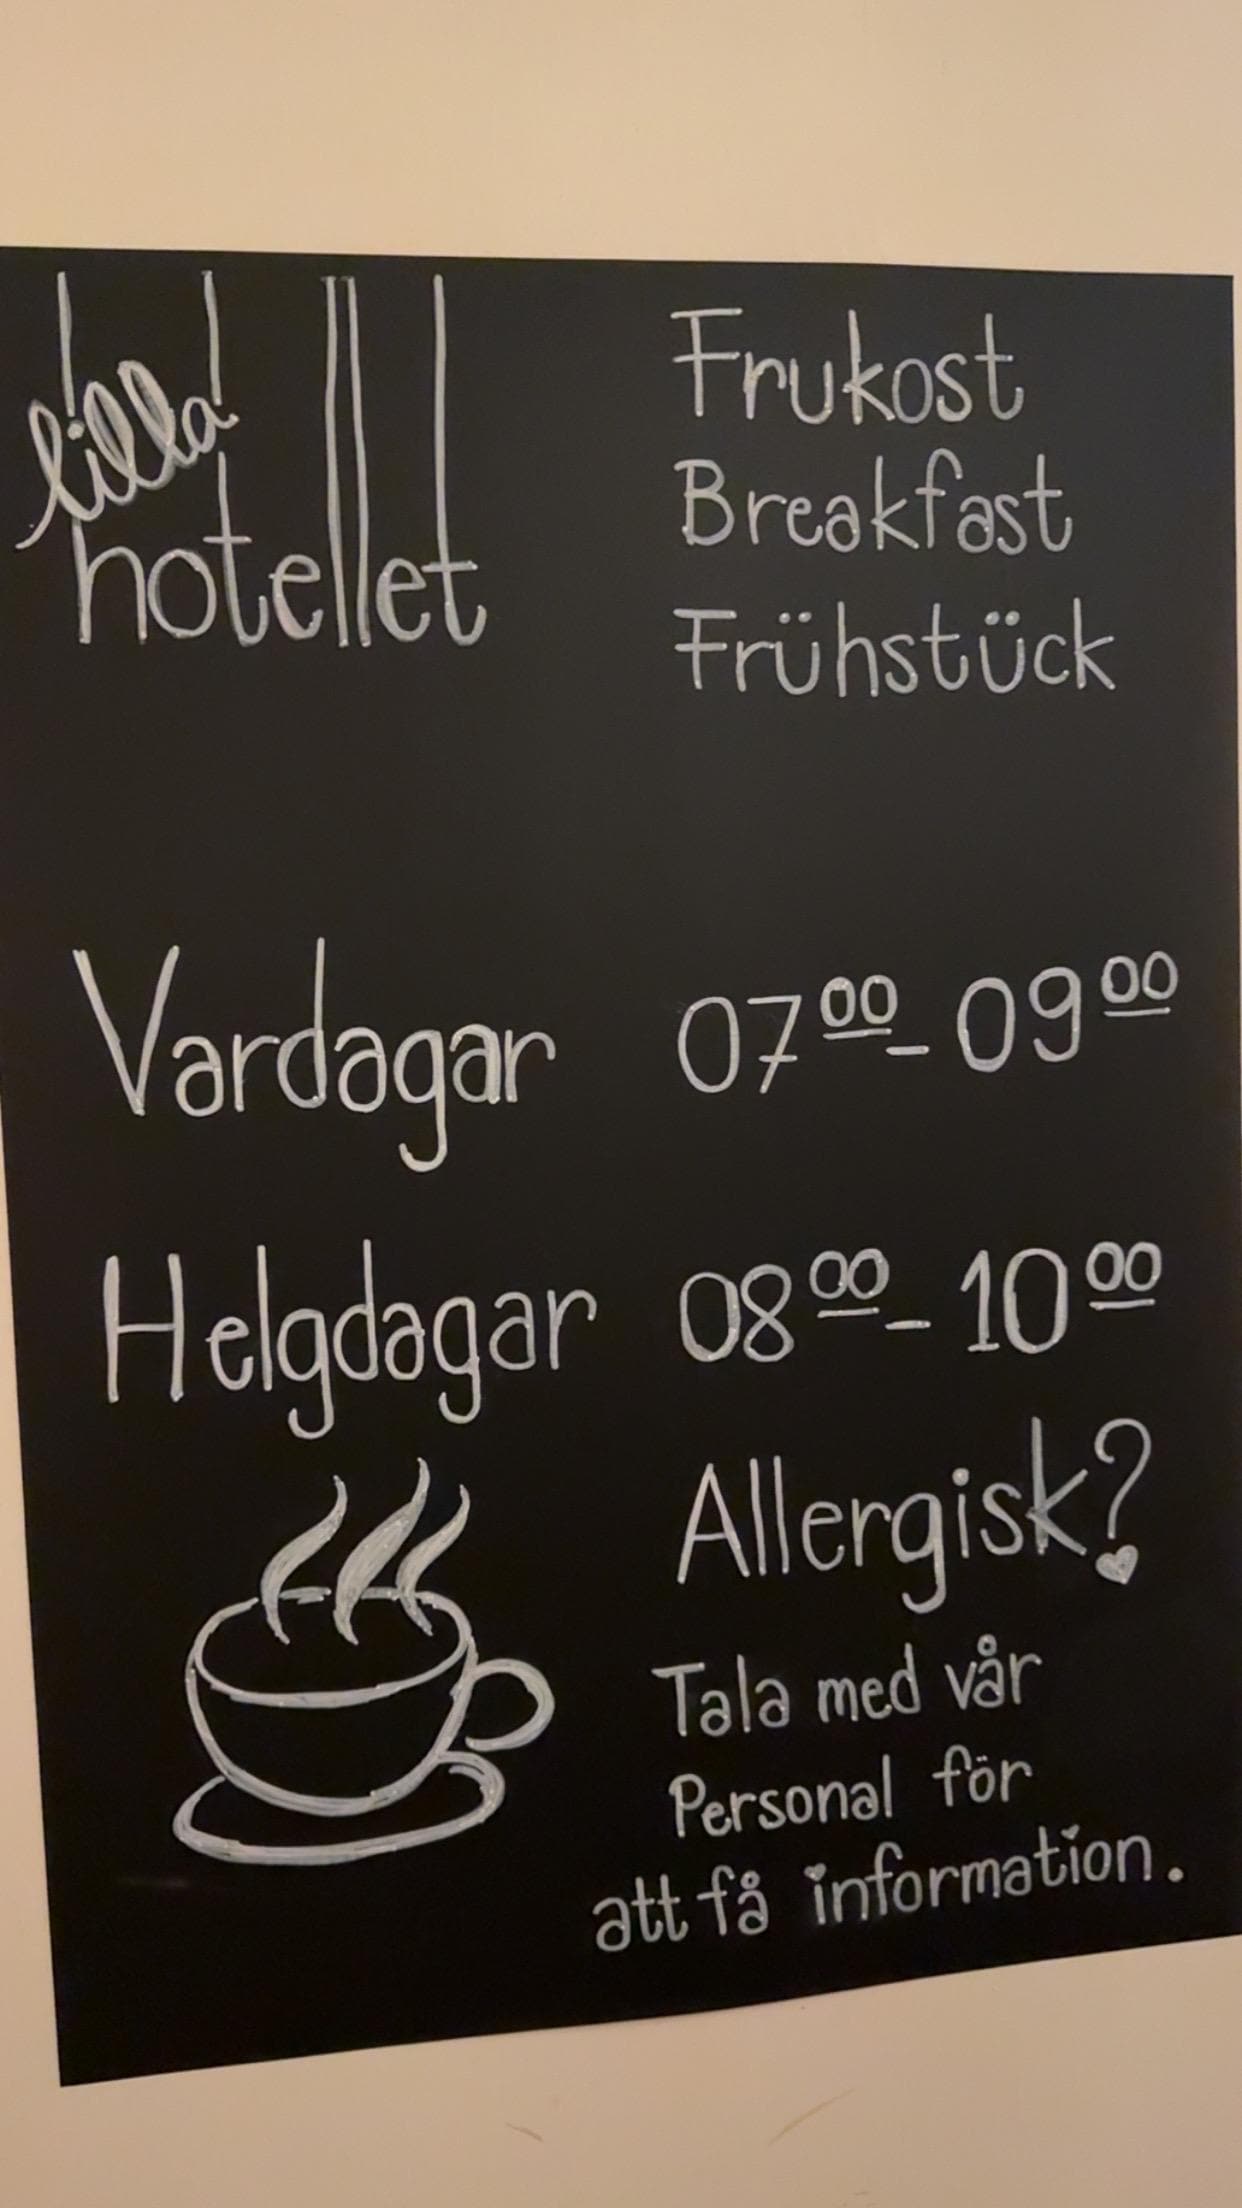 lilla
hotellet
Frukost
Breakfast
Frühstück
Vardagar 07 00 - 09 00
Helgdagar 08 00 - 10 00
Allergisk?
Tala med vår
Personal för
att få information.